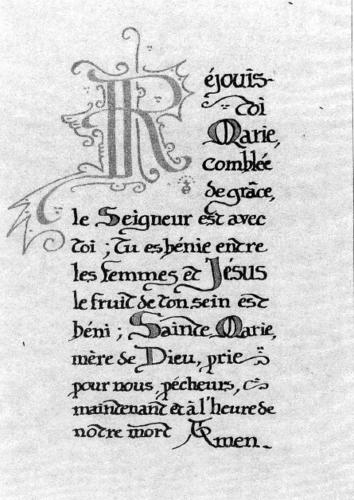 Réjouis-
toi
Marie,
comblée
de grâce,
le Seigneur est avec
toi ; Tu es bénie entre
les femmes et Jésus
le fruit de ton sein est
béni ; Sainte Marie,
mère de Dieu, prie
pour nous, pécheurs,
maintenant et à l'heure de
notre mort Amen